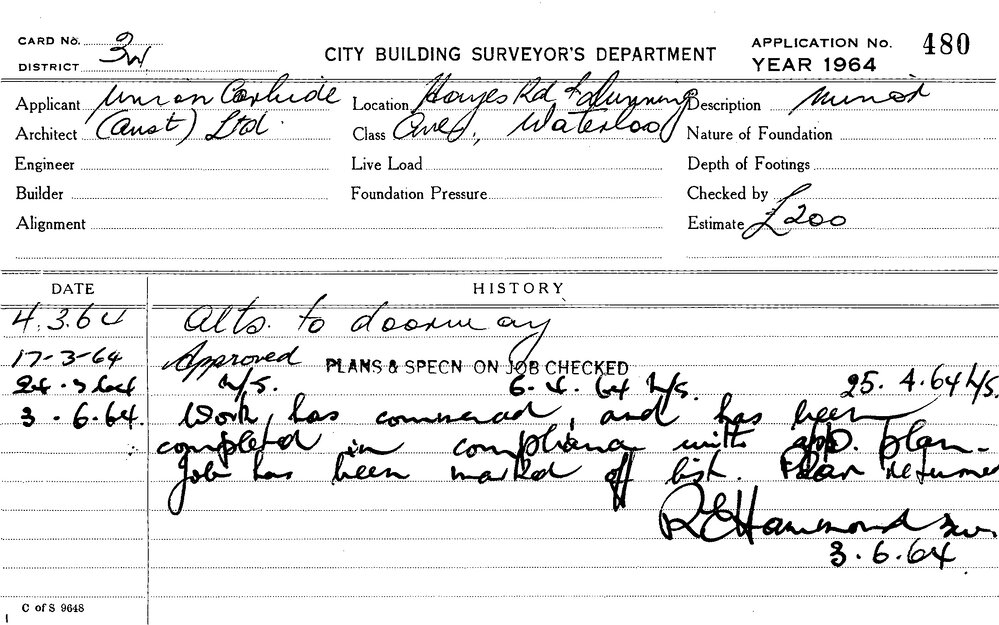 CARD No. 3W
DISTRICT
CITY BUILDING SURVEYOR'S DEPARTMENT
APPLICATION No. 480
YEAR 1964
Applicant Union Carbide Location Hayes Rd & Dunning Description Minor
Architect (Aust) Ltd. Class Ave, Waterloo Nature of Foundation
Engineer Live Load Depth of Footings
Builder Foundation Pressure Checked by
Alignment Estimate £200
DATE HISTORY
4.3.64 Alts. to doorway
17-3-64 Approved PLANS & SPECN ON JOB CHECKED
24.3.64 N/S. 6.4.64 N/S. 25.4.64 N/S.
3.6.64. Work has commenced, and has been
completed in compliance with app. plan.
Job has been marked off list. Plan returned
R E Hammond 3W.
3.6.64
C of S 9648
1